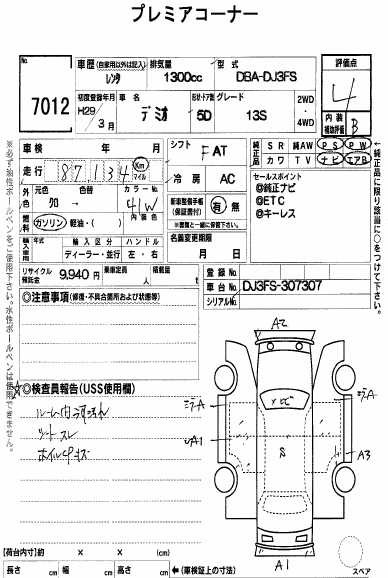 プレミアコーナー
No.
7012
車歴 (自家用以外は記入) レンタ
排気量 1300cc
型式 DBA-DJ3FS
評価点 4
内装補助評価 B
初度登録年月 H29年 3月
車名 デミオ
形状・ドア数 5D
グレード 13S
2WD・4WD
車検 年 月
シフト FAT
純正品 SR 純AW PS PW
カワ TV ナビ エアB
走行 87,134 Km マイル
冷房 AC
セールスポイント
@純正ナビ
@ETC
@キーレス
外色 元色 クロ → 色替
カラーNo. 41W
内装色
燃料 ガソリン・軽油・( )
新車整備手帳(保証書付) 有 無
※書類と一緒に保管下さい。
輸入車 年式 輸入区分 ディーラー・並行 ハンドル 左・右
名義変更期限 月 日
リサイクル預託金 9,940円
乗車定員 人
積載量 t
登録No.
車台No. DJ3FS-307307
シリアルNo.
◎注意事項(修復・不具合箇所および状態等)
☆◎検査員報告(USS使用欄)
ルーム内汚れ
シートスレ
ホイルキズ
A2
A
A
A1
A3
S
A1
スペア
[荷台内寸]約 × × (cm)
長さ cm 幅 cm 高さ cm ←(車検証上の寸法)
※必ず油性ボールペンをご使用下さい。水性ボールペンは使用できません。
←純正品に限り該当に○をつけて下さい。